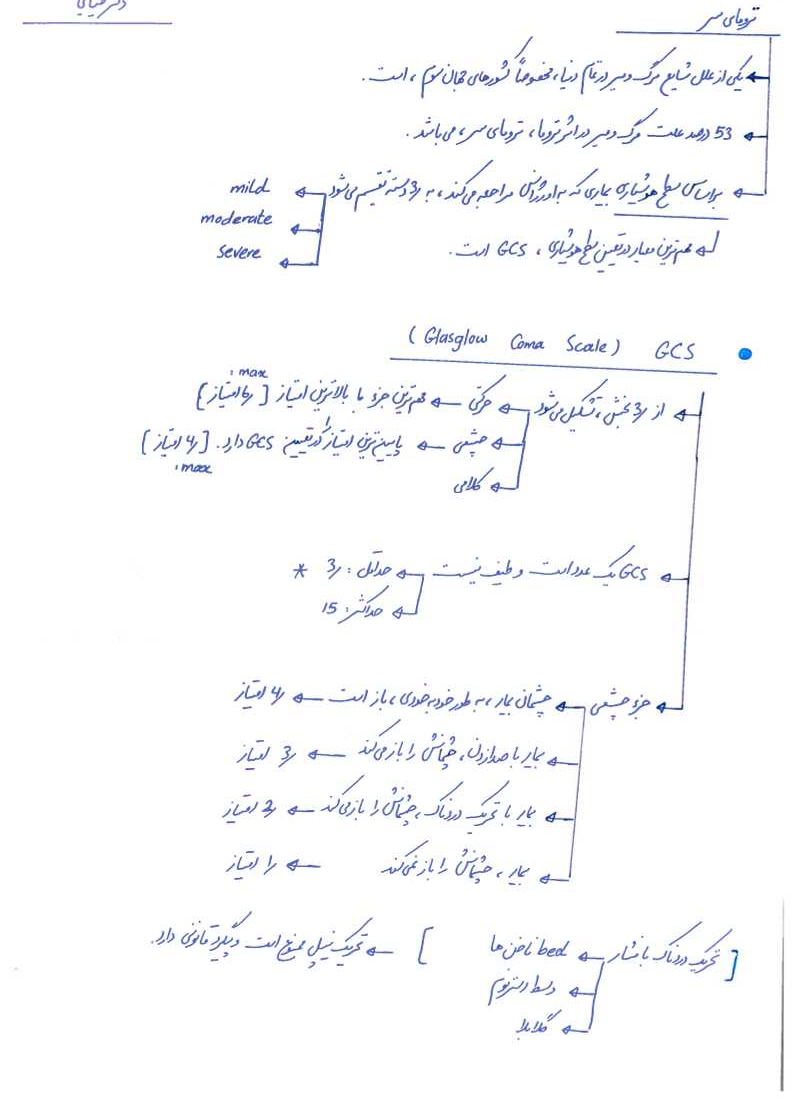 ترومای سر
یکی از علل شایع مرگ و میر در تمام دنیا، مخصوصاً کشورهای جهان سوم، است.
53 درصد علت مرگ و میر در اثر تروما، ترومای سر، می باشد.
براساس سطح هوشیاری بیماری که به اورژانس مراجعه می کند، به 3 دسته تقسیم می شود
mild
moderate
severe
مهم ترین معیار در تعیین سطح هوشیاری، GCS است.
GCS (Glasglow Coma Scale)
از 3 بخش، تشکیل می شود
حرکتی ← مهم ترین جزء با بالاترین امتیاز [6 امتیاز] max:
چشمی ← پایین ترین امتیاز را در تعیین GCS دارد. [4 امتیاز] max:
کلامی
GCS یک عدد است و طیف نیست
حداقل: 3 *
حداکثر: 15
جزء چشمی
چشمان بیمار، به طور خود به خودی، باز است ← 4 امتیاز
بیمار با صدا زدن، چشمانش را باز می کند ← 3 امتیاز
بیمار با تحریک دردناک، چشمانش را باز می کند ← 2 امتیاز
بیمار، چشمانش را باز نمی کند ← 1 امتیاز
[تحریک دردناک با فشار ← bed ناخن ها] ← تحریک نیپل ممنوع است و پیگرد قانونی دارد.
وسط استرنوم
گلابلا